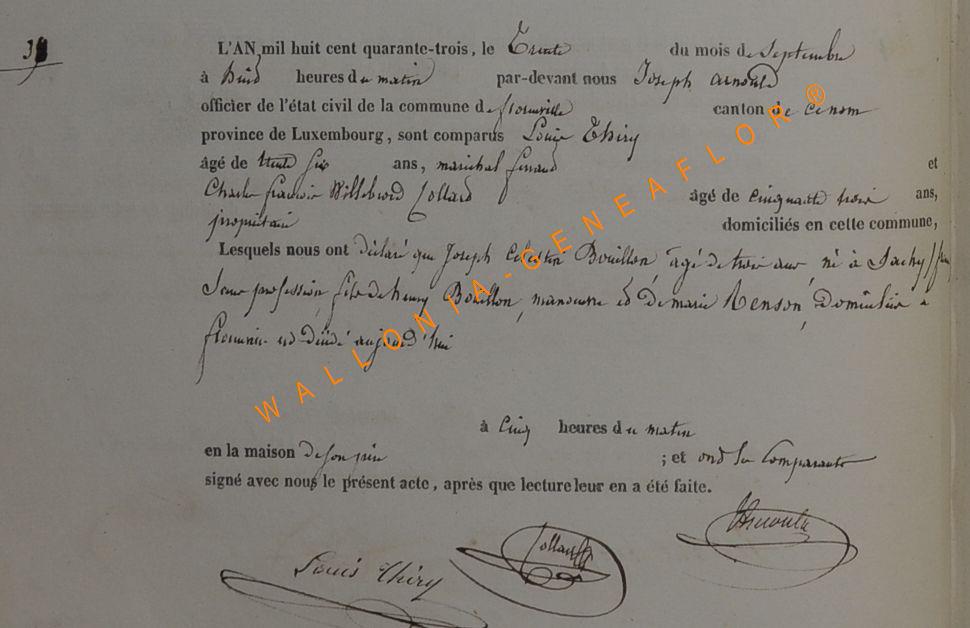 39
L'AN mil huit cent quarante-trois, le Trente du mois de Septembre
à huit heures du matin par-devant nous Joseph Arnould
officier de l'état civil de la commune de florenville canton de ce nom
province de Luxembourg, sont comparus Louis Thiry
âgé de trente six ans, maréchal ferrant et
Charles françois Willebrord Collard âgé de cinquante trois ans,
propriétaire domiciliés en cette commune,
Lesquels nous ont déclaré que Joseph Celestin Bouillon, agé de trois ans, né à Sachy
Sans profession, fils de henry Bouillon, manoeuvre et de marie Henson, Domiciliés à
est Décédé aujourd'hui
à cinq heures du matin
en la maison de son père ; et ont les Comparants
signé avec nous le présent acte, après que lecture leur en a été faite.
Louis Thiry Collard Arnould
WALLONIA-GENEAFLOR®